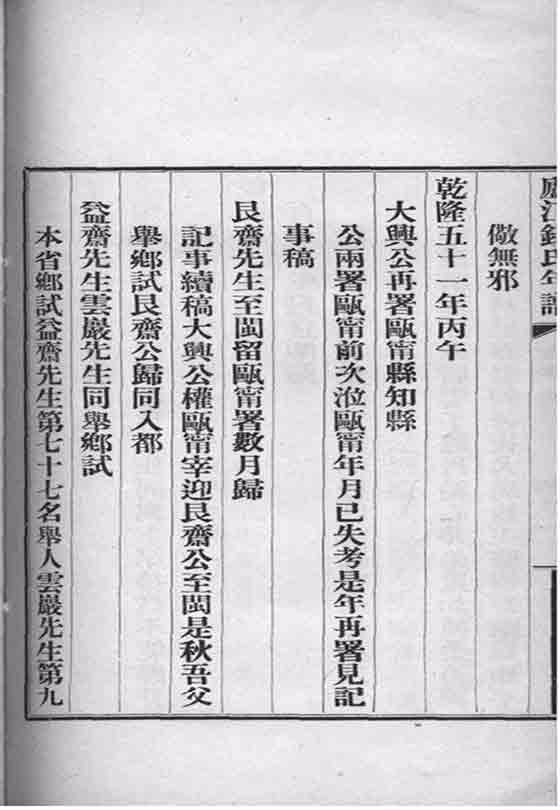 廬江錢氏年譜
儆無邪
乾隆五十一年丙午
大興公再署甌甯縣知縣
公兩署甌甯前次涖甌甯年月已失考是年再署見記
事稿
艮齋先生至閩留甌甯署數月歸
記事續稿大興公權甌甯宰迎艮齋公至閩是秋吾父
舉鄉試艮齋公歸同入都
益齋先生雲巖先生同舉鄉試
本省鄉試益齋先生第七十七名舉人雲巖先生第九